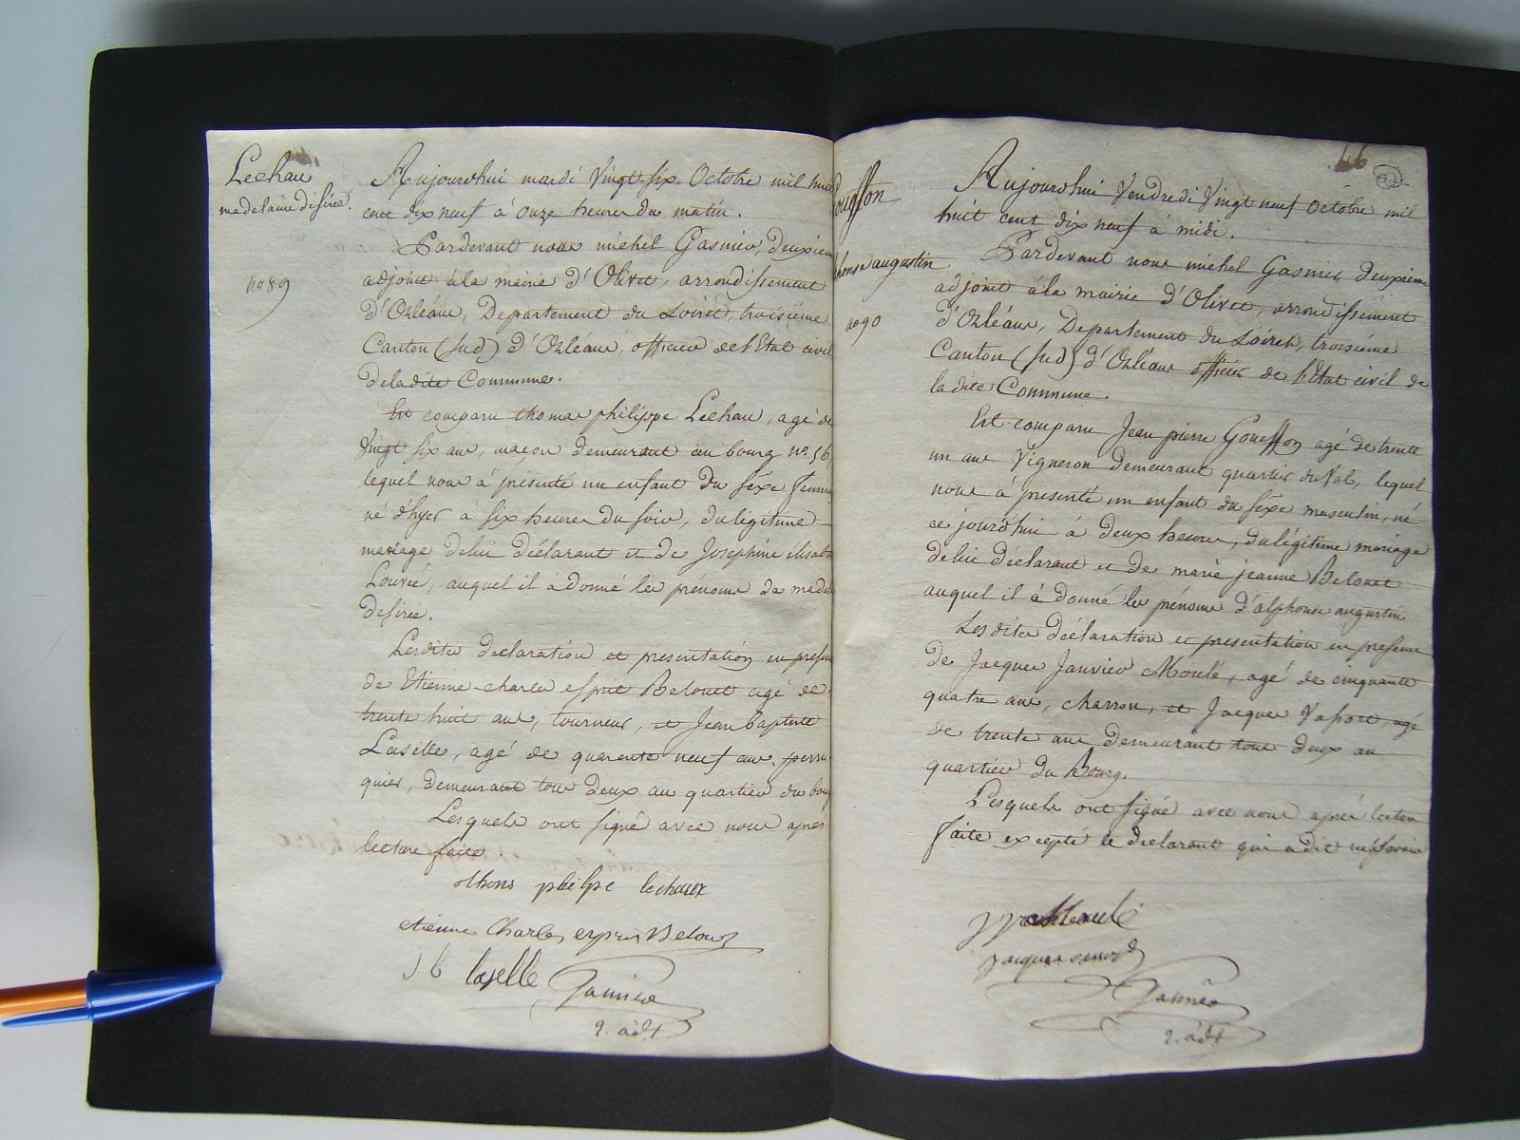 Lechau
madelaine desirée.
no 89
Aujourdhui mardi Vingt-six Octobre mil huit
cent dix neuf à onze heures du matin.
Pardevant nous michel Gasnier, deuxiem
adjoint à la mairie d'Olivet, arrondissement
d'Orléans, Departement du Loiret, troisième
Canton (sud) d'Orléans, officier de l'Etat civil
de la dite Commune.
Est comparu thomas philippe Lechau, agé de
Vingt six ans, maçon demeurant au bourg no. 56,
lequel nous à présenté un enfant du séxe femin
né d'hyer à six heures du soir, du légitime
mariage de lui déclarant et de Josephine élisab
Louvré, auquel il à donné les prénoms de madel
desirée.
Lesdites declaration et presentation en presen
de Etienne-charles esprit Belouet agé de
trente huit ans, tourneur, et Jean baptiste
Laselle, agé de quarante neuf ans, perru
quier, demeurant tous deux au quartier du bourg
Lesquels ont signé avec nous après
lecture faite.
thons philpe lechaux
etienne Charles esprit Belouet
J b laselle Gasnier
2. adjt
46
ougffon
phonse augustin
no 90
Aujourdhui Vendredi Vingt neuf Octobre mil
huit cent dix neuf à midi.
Pardevant nous michel Gasnier deuxieme
adjoint à la mairie d'Olivet, arrondissement
d'Orléans, Departement du Loiret, troisième
Canton (sud) d'Orléans officier de l'Etat civil de
la dite Commune.
Est comparu Jean pierre Goueffon agé de trente
un ans Vigneron demeurant quartier du Val, lequel
nous à presenté un enfant du séxe masculin, né
ce jourd'hui à deux heures, du légitime mariage
de lui déclarant et de marie jeanne Belouet
auquel il à donné les prénoms d'alphonse augustin.
Les dites déclaration et presentation en presence
de Jacques Janvier Moulé, agé de cinquante
quatre ans, charron, et Jacques agé
de trente ans demeurant tous deux au
quartier du Bourg.
Lesquels ont signé avec nous après lecture
faite excepté le declarant qui a dit ne savoir
jacques
Gasnier
2. adjt